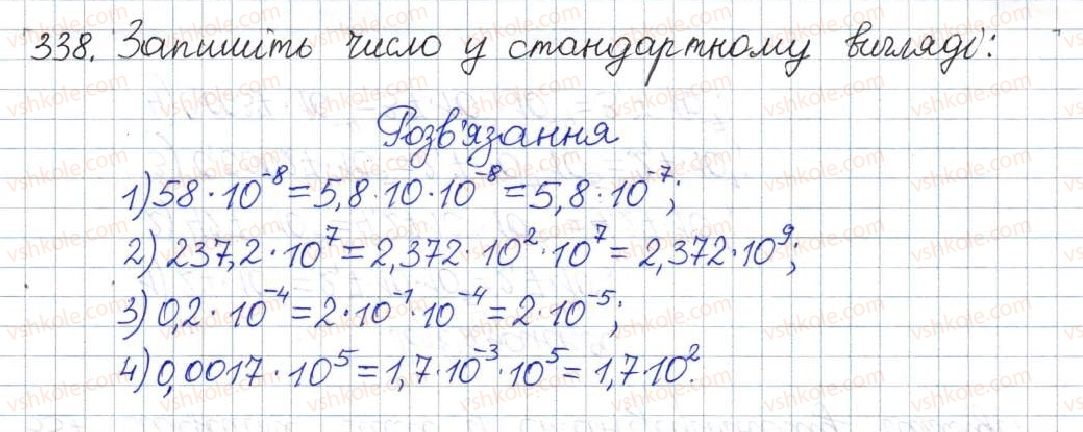 338. Запишіть число у стандартному вигляді:
Розв'язання
1) 58 · 10⁻⁸ = 5,8 · 10 · 10⁻⁸ = 5,8 · 10⁻⁷;
2) 237,2 · 10⁷ = 2,372 · 10² · 10⁷ = 2,372 · 10⁹;
3) 0,2 · 10⁻⁴ = 2 · 10⁻¹ · 10⁻⁴ = 2 · 10⁻⁵;
4) 0,0017 · 10⁵ = 1,7 · 10⁻³ · 10⁵ = 1,7 · 10².